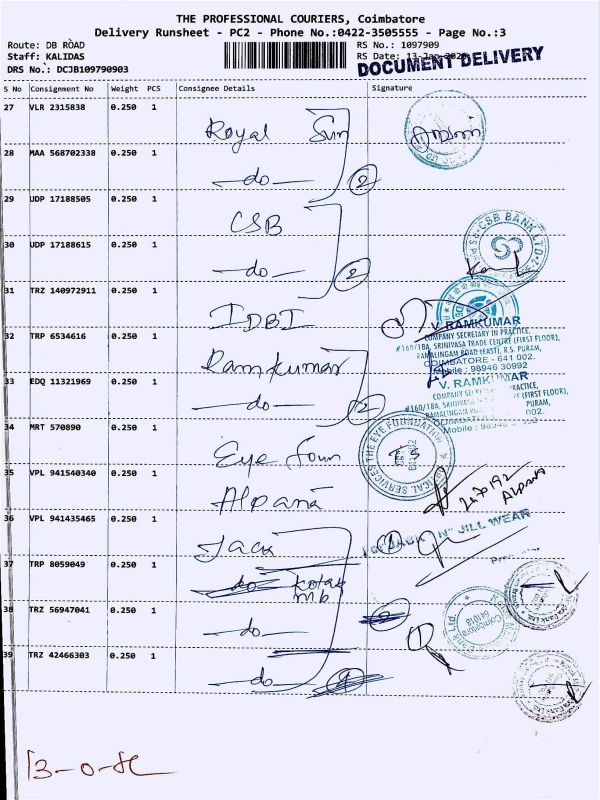 THE PROFESSIONAL COURIERS, Coimbatore
Delivery Runsheet - PC2 - Phone No.:0422-3505555 - Page No.:3
Route: DB ROAD
RS No.: 1097909
Staff: KALIDAS
RS Date: 13-Jan-
DOCUMENT DELIVERY
DRS No.: DCJB109790903
S No Consignment No Weight PCS Consignee Details Signature
27 VLR 2315838 0.250 1
Royal Sun
28 MAA 568702338 0.250 1
-do- 2
29 UDP 17188505 0.250 1
CSB
CSB BANK LTD
30 UDP 17188615 0.250 1
-do- 2
31 TRZ 140972911 0.250 1
IDBI
V. RAMKUMAR
COMPANY SECRETARY IN PRACTICE,
#160/18A, SRINIVASA TRADE CENTRE (FIRST FLOOR),
RAMALINGAM ROAD (EAST), R.S. PURAM,
COIMBATORE - 641 002.
Mobile : 98946 30992
32 TRP 6534616 0.250 1
Ramkumar
33 EDQ 11321969 0.250 1
-do- 2
V. RAMKUMAR
COMPANY PRACTICE,
#160/18A, (FIRST FLOOR),
RAMALINGAM PURAM,
002.
Mobile : 98946
34 MRT 570890 0.250 1
Eye Foun
THE EYE FOUNDATION
35 VPL 941540340 0.250 1
Alpana
Alpana
36 VPL 941435465 0.250 1
Jack
JILL WEAR
37 TRP 8059049 0.250 1
do Kotak
mb
38 TRZ 56947041 0.250 1
-do-
Coimbatore
39 TRZ 42466303 0.250 1
-do-